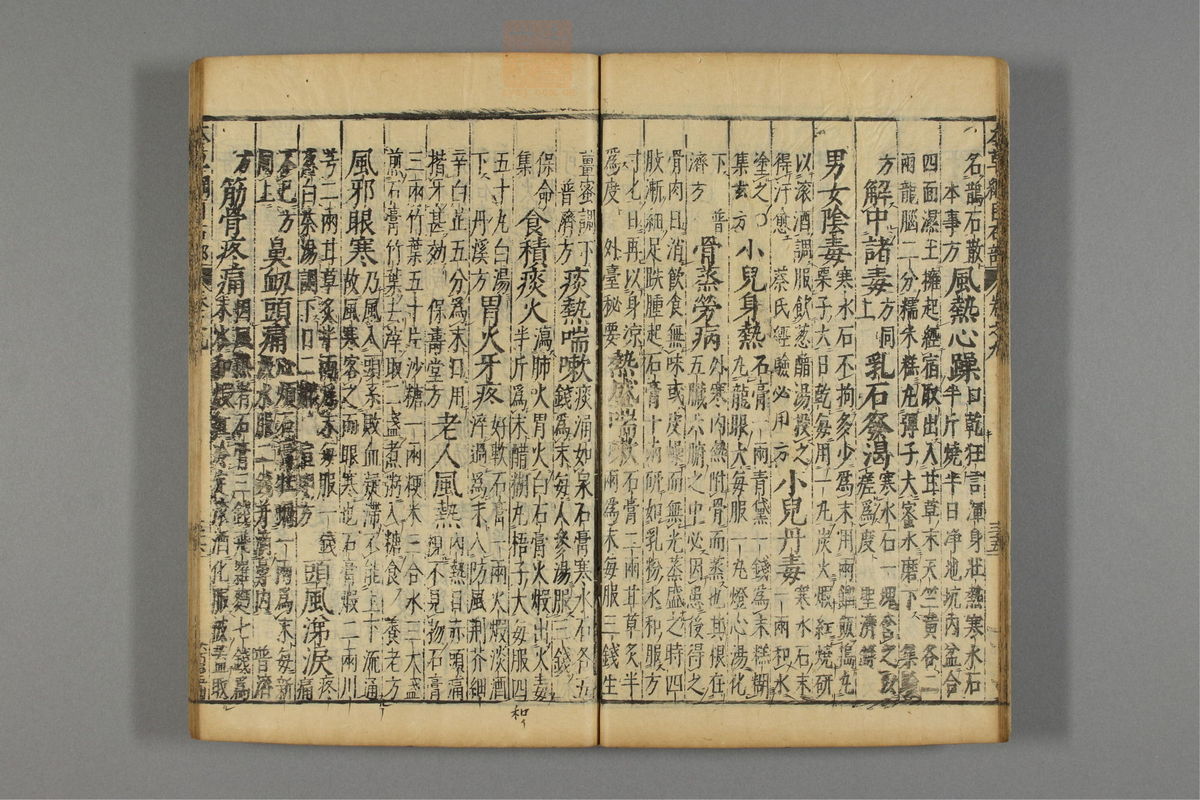 名鵲石散
本事方
風熱心躁
口乾狂言渾身壯熱寒水石
半斤燒半日净地坑內盆合
四面濕土擁起經宿取出入甘草末天竺黃各二
兩龍腦二分糯米糕丸彈子大蜜水磨下 集玄
方
解中諸毒
方同
上
乳石發渴
寒水石一塊含之以
瘥為度 聖濟錄
男女陰毒
寒水石不拘多少為末用兩餾飯搗丸
栗子大日乾每用一丸炭火煅紅燒研
以滾酒調服飲葱醋湯投之
得汗愈 蔡氏經驗必用方
小兒丹毒
寒水石末
一兩和水
塗之〇
集玄方
小兒身熱
石膏一兩青黛一錢為末糕糊
丸龍眼大每服一丸燈心湯化
下 普
濟方
骨蒸勞病
外寒內熱附骨而蒸也其根在
五臟六腑之中必因患後得之
骨肉日消飲食無味或皮燥而無光蒸盛之時四
肢漸細足趺腫起石膏十兩研如乳粉水和服方
寸匕日再以身涼
為度 外臺秘要
熱盛喘嗽
石膏二兩甘草炙半
兩為末每服三錢生
薑蜜調下
普濟方
痰熱喘嗽
痰涌如泉石膏寒水石各五
錢為末每人參湯服三錢
保命
集
食積痰火
瀉肺火胃火白石膏火煅出火毒
半斤為末醋糊丸梧子大每服四
五十丸白湯
下 丹溪方
胃火牙疼
好軟石膏一兩火煅淡酒
淬過為末入防風荊芥細
辛白芷五分為末日用
揩牙甚効 保壽堂方
老人風熱
內熱目赤頭痛
視不見物石膏
三兩竹葉五十片沙糖一兩粳米三合水三大盞
煎石膏竹葉去滓取二盞煮粥入糖食 養老方
風邪眼寒
乃風入頭系敗血凝滯不能上下流通
故風寒客之而眼寒也石膏煅二兩川
芎二兩甘草炙半兩為末每服一錢
葱白茶湯調下日二服 宣明方
頭風涕淚
疼痛
不已方
同上
鼻衄頭痛
心煩石膏牡蠣一兩為末每新
汲水服二錢并滴鼻內 普濟
方
筋骨疼痛
因風熱者石膏三錢飛羅麪七錢為
末水和煅紅冷定滾酒化服被蓋取
和